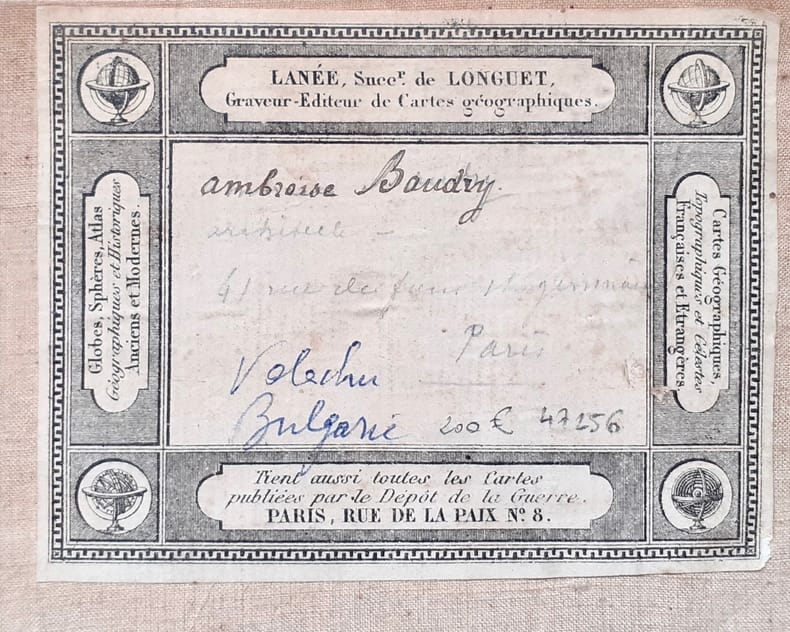 LANÉE, Succr. de LONGUET,
Graveur-Editeur de Cartes géographiques.
Globes, Sphères, Atlas
Géographiques et Historiques
Anciens et Modernes.
ambroise Baudry.
architecte -
41 rue du four st germain
Paris
Bulgarie 200€ 47256
Cartes Géographiques,
Topographiques et Célestes
Françaises et Etrangères.
Tient aussi toutes les Cartes
publiées par le Dépôt de la Guerre.
PARIS, RUE DE LA PAIX No. 8.